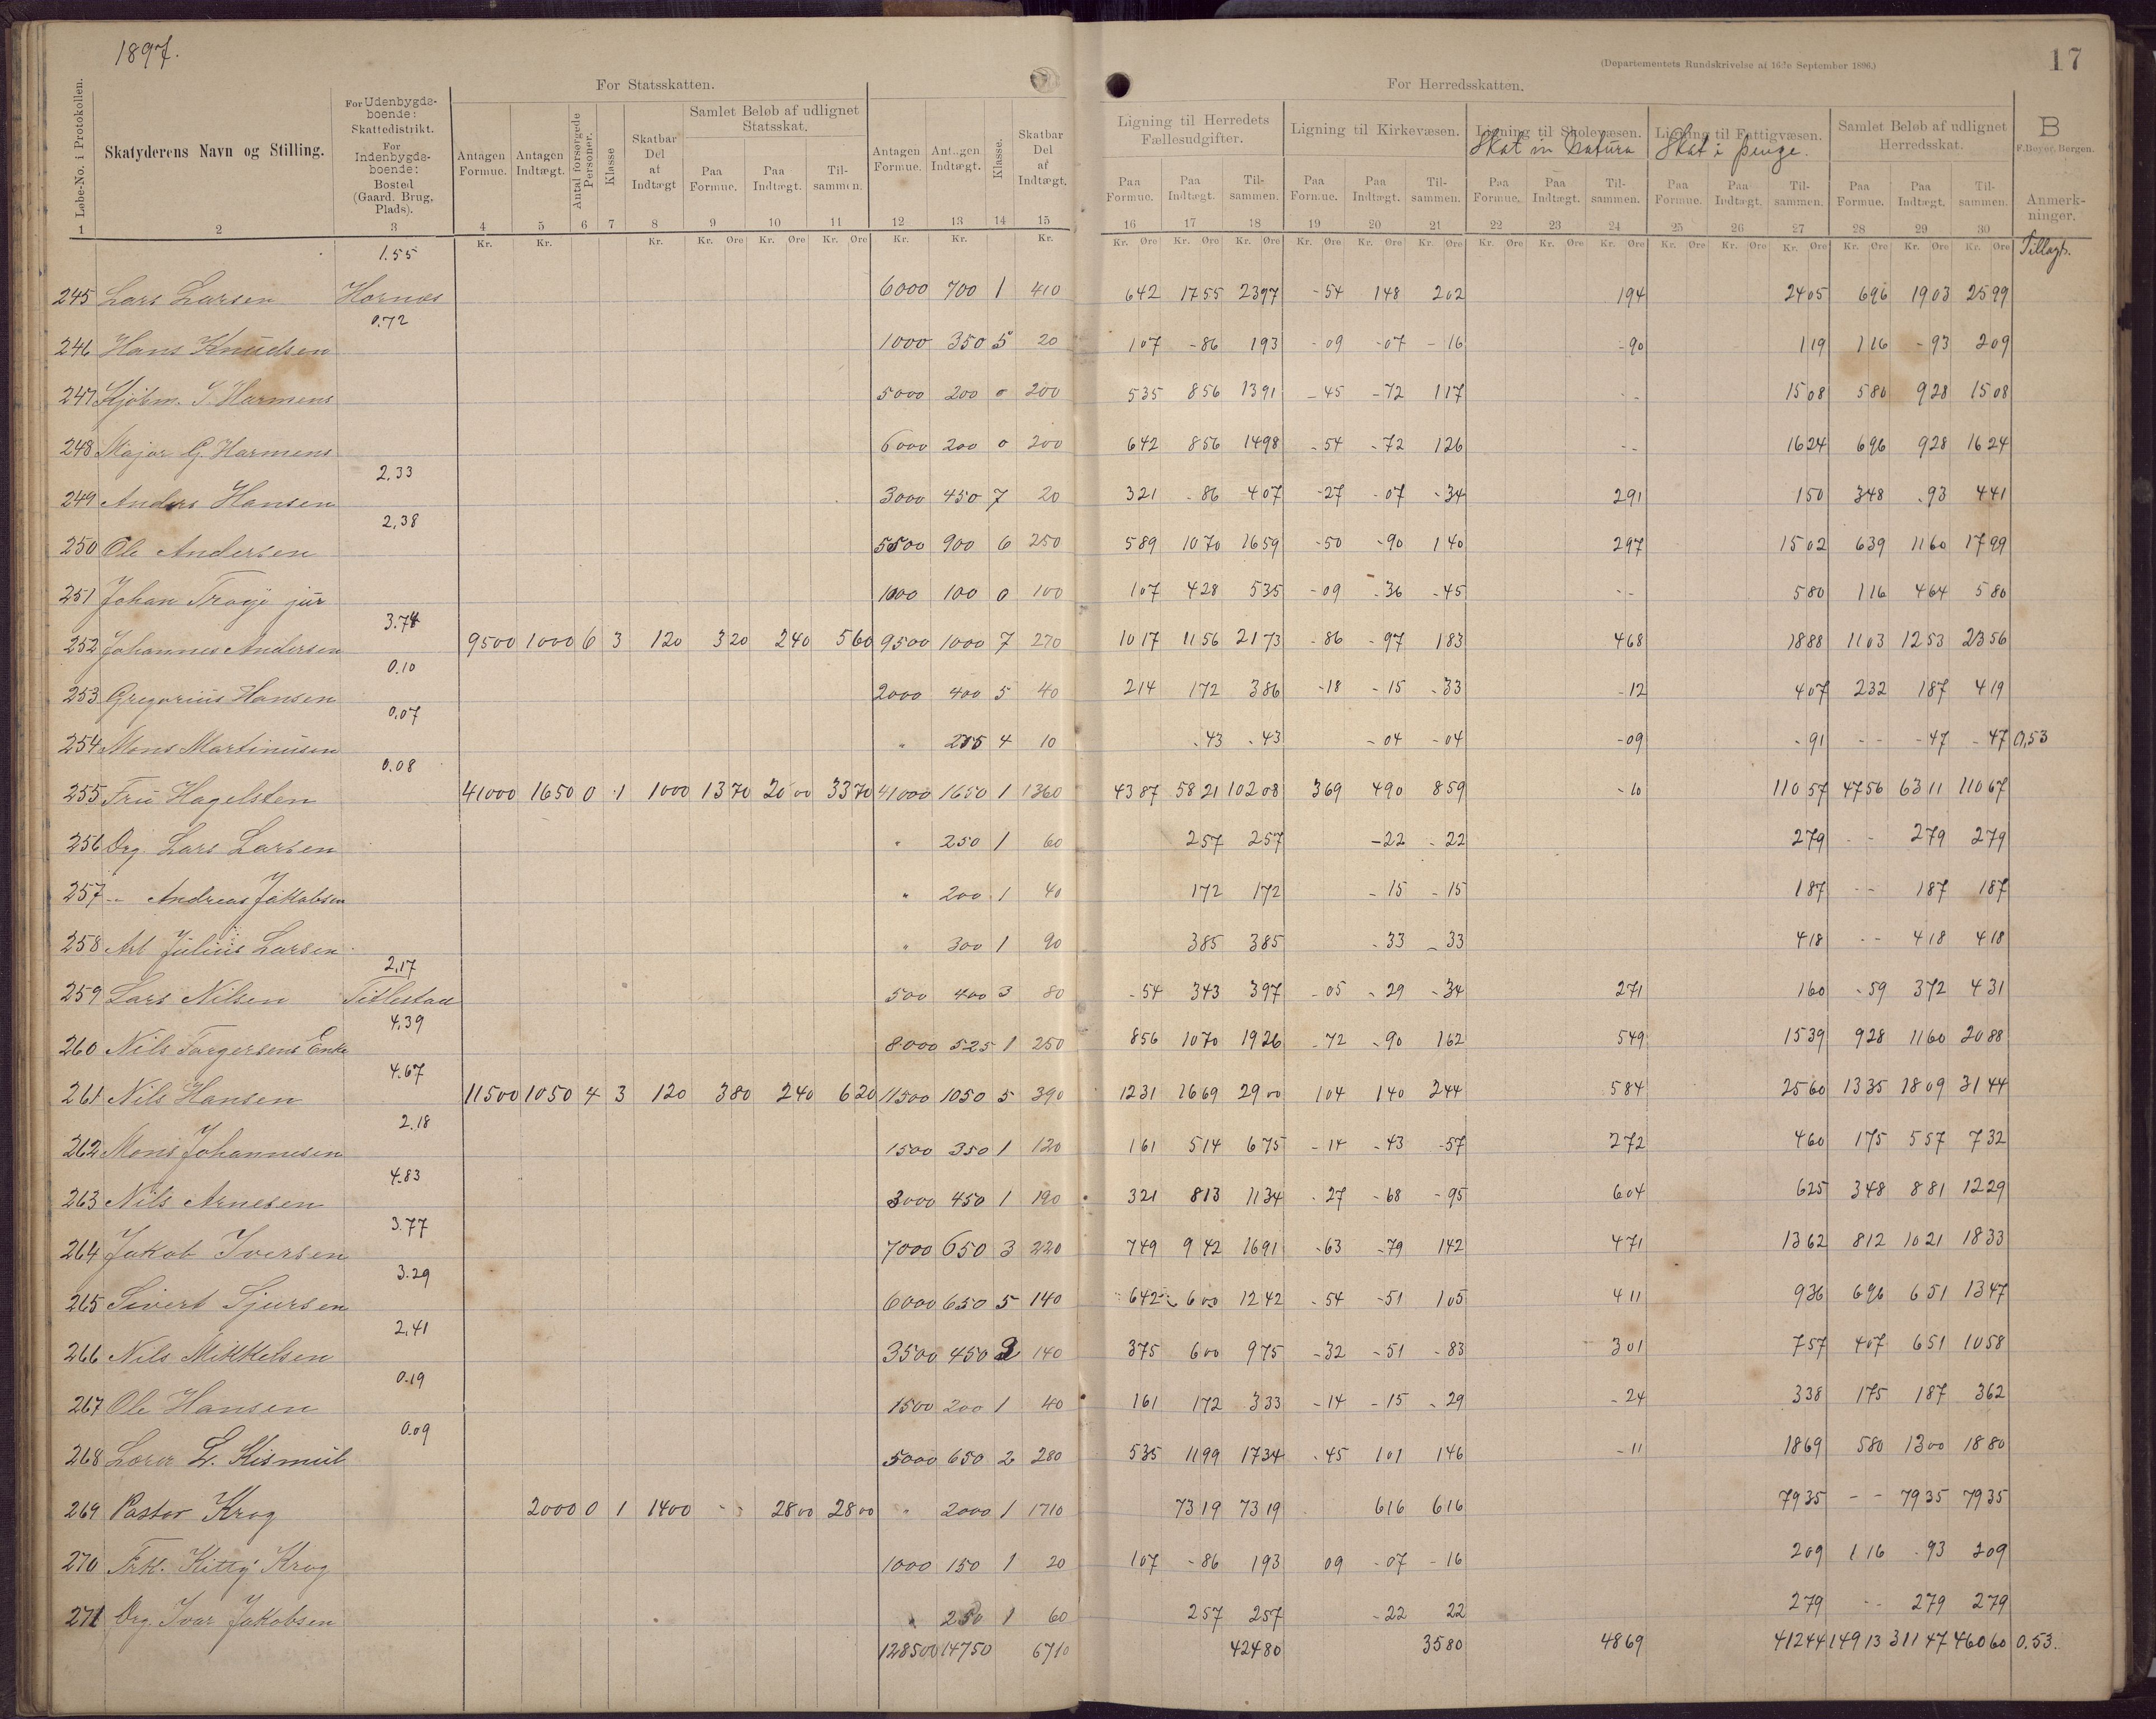 1897.
17
(Departementets Rundskrivelse af 16de September 1896.)
For Statsskatten.
For Herredsskatten.
B
F. Beyer, Bergen.
Løbe-No. i Protokollen.
Skatyderens Navn og Stilling.
For Udenbygdsboende: Skattedistrikt. For Indenbygdsboende: Bosted (Gaard. Brug, Plads).
Antagen Formue.
Antagen Indtægt.
Antal forsørgede Personer.
Klasse
Skatbar Del af Indtægt
Samlet Beløb af udlignet Statsskat.
Paa Formue. Paa Indtægt. Tilsammen.
Antagen Formue. Antagen Indtægt. Klasse. Skatbar Del af Indtægt.
Ligning til Herredets Fællesudgifter.
Ligning til Kirkevæsen.
Ligning til Skolevæsen.
Skat in Natura
Ligning til Fattigvæsen.
Skat i penge.
Samlet Beløb af udlignet Herredsskat.
Paa Formue. Paa Indtægt. Tilsammen. Paa Formue. Paa Indtægt. Tilsammen. Paa Formue. Paa Indtægt. Tilsammen. Paa Formue. Paa Indtægt. Tilsammen. Paa Formue. Paa Indtægt. Tilsammen. Anmerkninger.
1 2 3 4 5 6 7 8 9 10 11 12 13 14 15 16 17 18 19 20 21 22 23 24 25 26 27 28 29 30
Kr. Kr. Kr. Kr. Øre Kr. Øre Kr. Øre Kr. Kr. Kr. Kr. Øre Kr. Øre Kr. Øre Kr. Øre Kr. Øre Kr. Øre Kr. Øre Kr. Øre Kr. Øre Kr. Øre Kr. Øre Kr. Øre Kr. Øre Kr. Øre Kr. Øre
Tillagt.
1.55
245 Lars Larsen Hornæs 6000 700 1 410 642 1755 2397 -54 148 202 194 2405 696 1903 2599
0.72
246 Hans Knudsen 1000 350 5 20 107 -86 193 -09 -07 -16 -90 119 116 -93 209
247 Kjøbm. S. Harmens 5000 200 0 200 535 856 1391 -45 -72 117 -- 1508 580 928 1508
248 Major G. Harmens 6000 200 0 200 642 856 1498 -54 -72 126 -- 1624 696 928 1624
2.33
249 Anders Hansen 3000 450 7 20 321 -86 407 -27 -07 -34 291 150 348 -93 441
2.38
250 Ole Andersen 5500 900 6 250 589 1070 1659 -50 -90 140 297 1502 639 1160 1799
251 Johan Troye jur 1000 100 0 100 107 428 535 -09 -36 -45 -- 580 116 464 580
3.74
252 Johannes Andersen 9500 1000 6 3 120 320 240 560 9500 1000 7 270 1017 1156 2173 -86 -97 183 468 1888 1103 1253 2356
0.10
253 Gregorius Hansen 2000 400 5 40 214 172 386 -18 -15 -33 -12 407 232 187 419
0.07
254 Mons Martinusen " 275 4 10 -43 -43 -04 -04 -09 -91 -- -47 -47 0,53
0.08
255 Fru Hagelsten 41000 1650 0 1 1000 1370 2000 3370 41000 1650 1 1360 4387 5821 10208 369 490 859 -10 11057 4756 6311 11067
256 Drg. Lars Larsen " 250 1 60 257 257 -22 -22 279 -- 279 279
257 -"- Andreas Jakobsen " 200 1 40 172 172 -15 -15 187 -- 187 187
258 Arb Julius Larsen " 300 1 90 385 385 -33 -33 418 -- 418 418
2.17
259 Lars Nilsen Titlestad 500 400 3 80 -54 343 397 -05 -29 -34 271 160 -59 372 431
4.39
260 Nils Torgersens Enke 8000 525 1 250 856 1070 1926 -72 -90 162 549 1539 928 1160 2088
4.67
261 Nils Hansen 11500 1050 4 3 120 380 240 620 11500 1050 5 390 1231 1669 2900 104 140 244 584 2560 1335 1809 3144
2.18
262 Mons Johannesen 1500 350 1 120 161 514 675 -14 -43 -57 272 460 175 557 732
4.83
263 Nils Arnesen 3000 450 1 190 321 813 1134 -27 -68 -95 604 625 348 881 1229
3.77
264 Jakob Iversen 7000 650 3 220 749 942 1691 -63 -79 142 471 1362 812 1021 1833
3.29
265 Sivert Sjursen 6000 650 5 140 642 600 1242 -54 -51 105 411 936 696 651 1347
2.41
266 Nils Mikkelsen 3500 450 2 140 375 600 975 -32 -51 -83 301 757 407 651 1058
0.19
267 Ole Hansen 1500 200 1 40 161 172 333 -14 -15 -29 -24 338 175 187 362
0.09
268 Lærer L. Kismul 5000 650 2 280 535 1199 1734 -45 101 146 -11 1869 580 1300 1880
269 Pastor Krog 2000 0 1 1400 -- 2800 2800 " 2000 1 1710 7319 7319 616 616 7935 -- 7935 7935
270 Frk. Kitty Krog 1000 150 1 20 107 -86 193 09 -07 -16 209 116 -93 209
271 Drg. Ivar Jakobsen " 250 1 60 257 257 -22 22 279 -- 279 279
128500 14750 6710 42480 3580 4869 41244 14913 31147 46060 0.53.